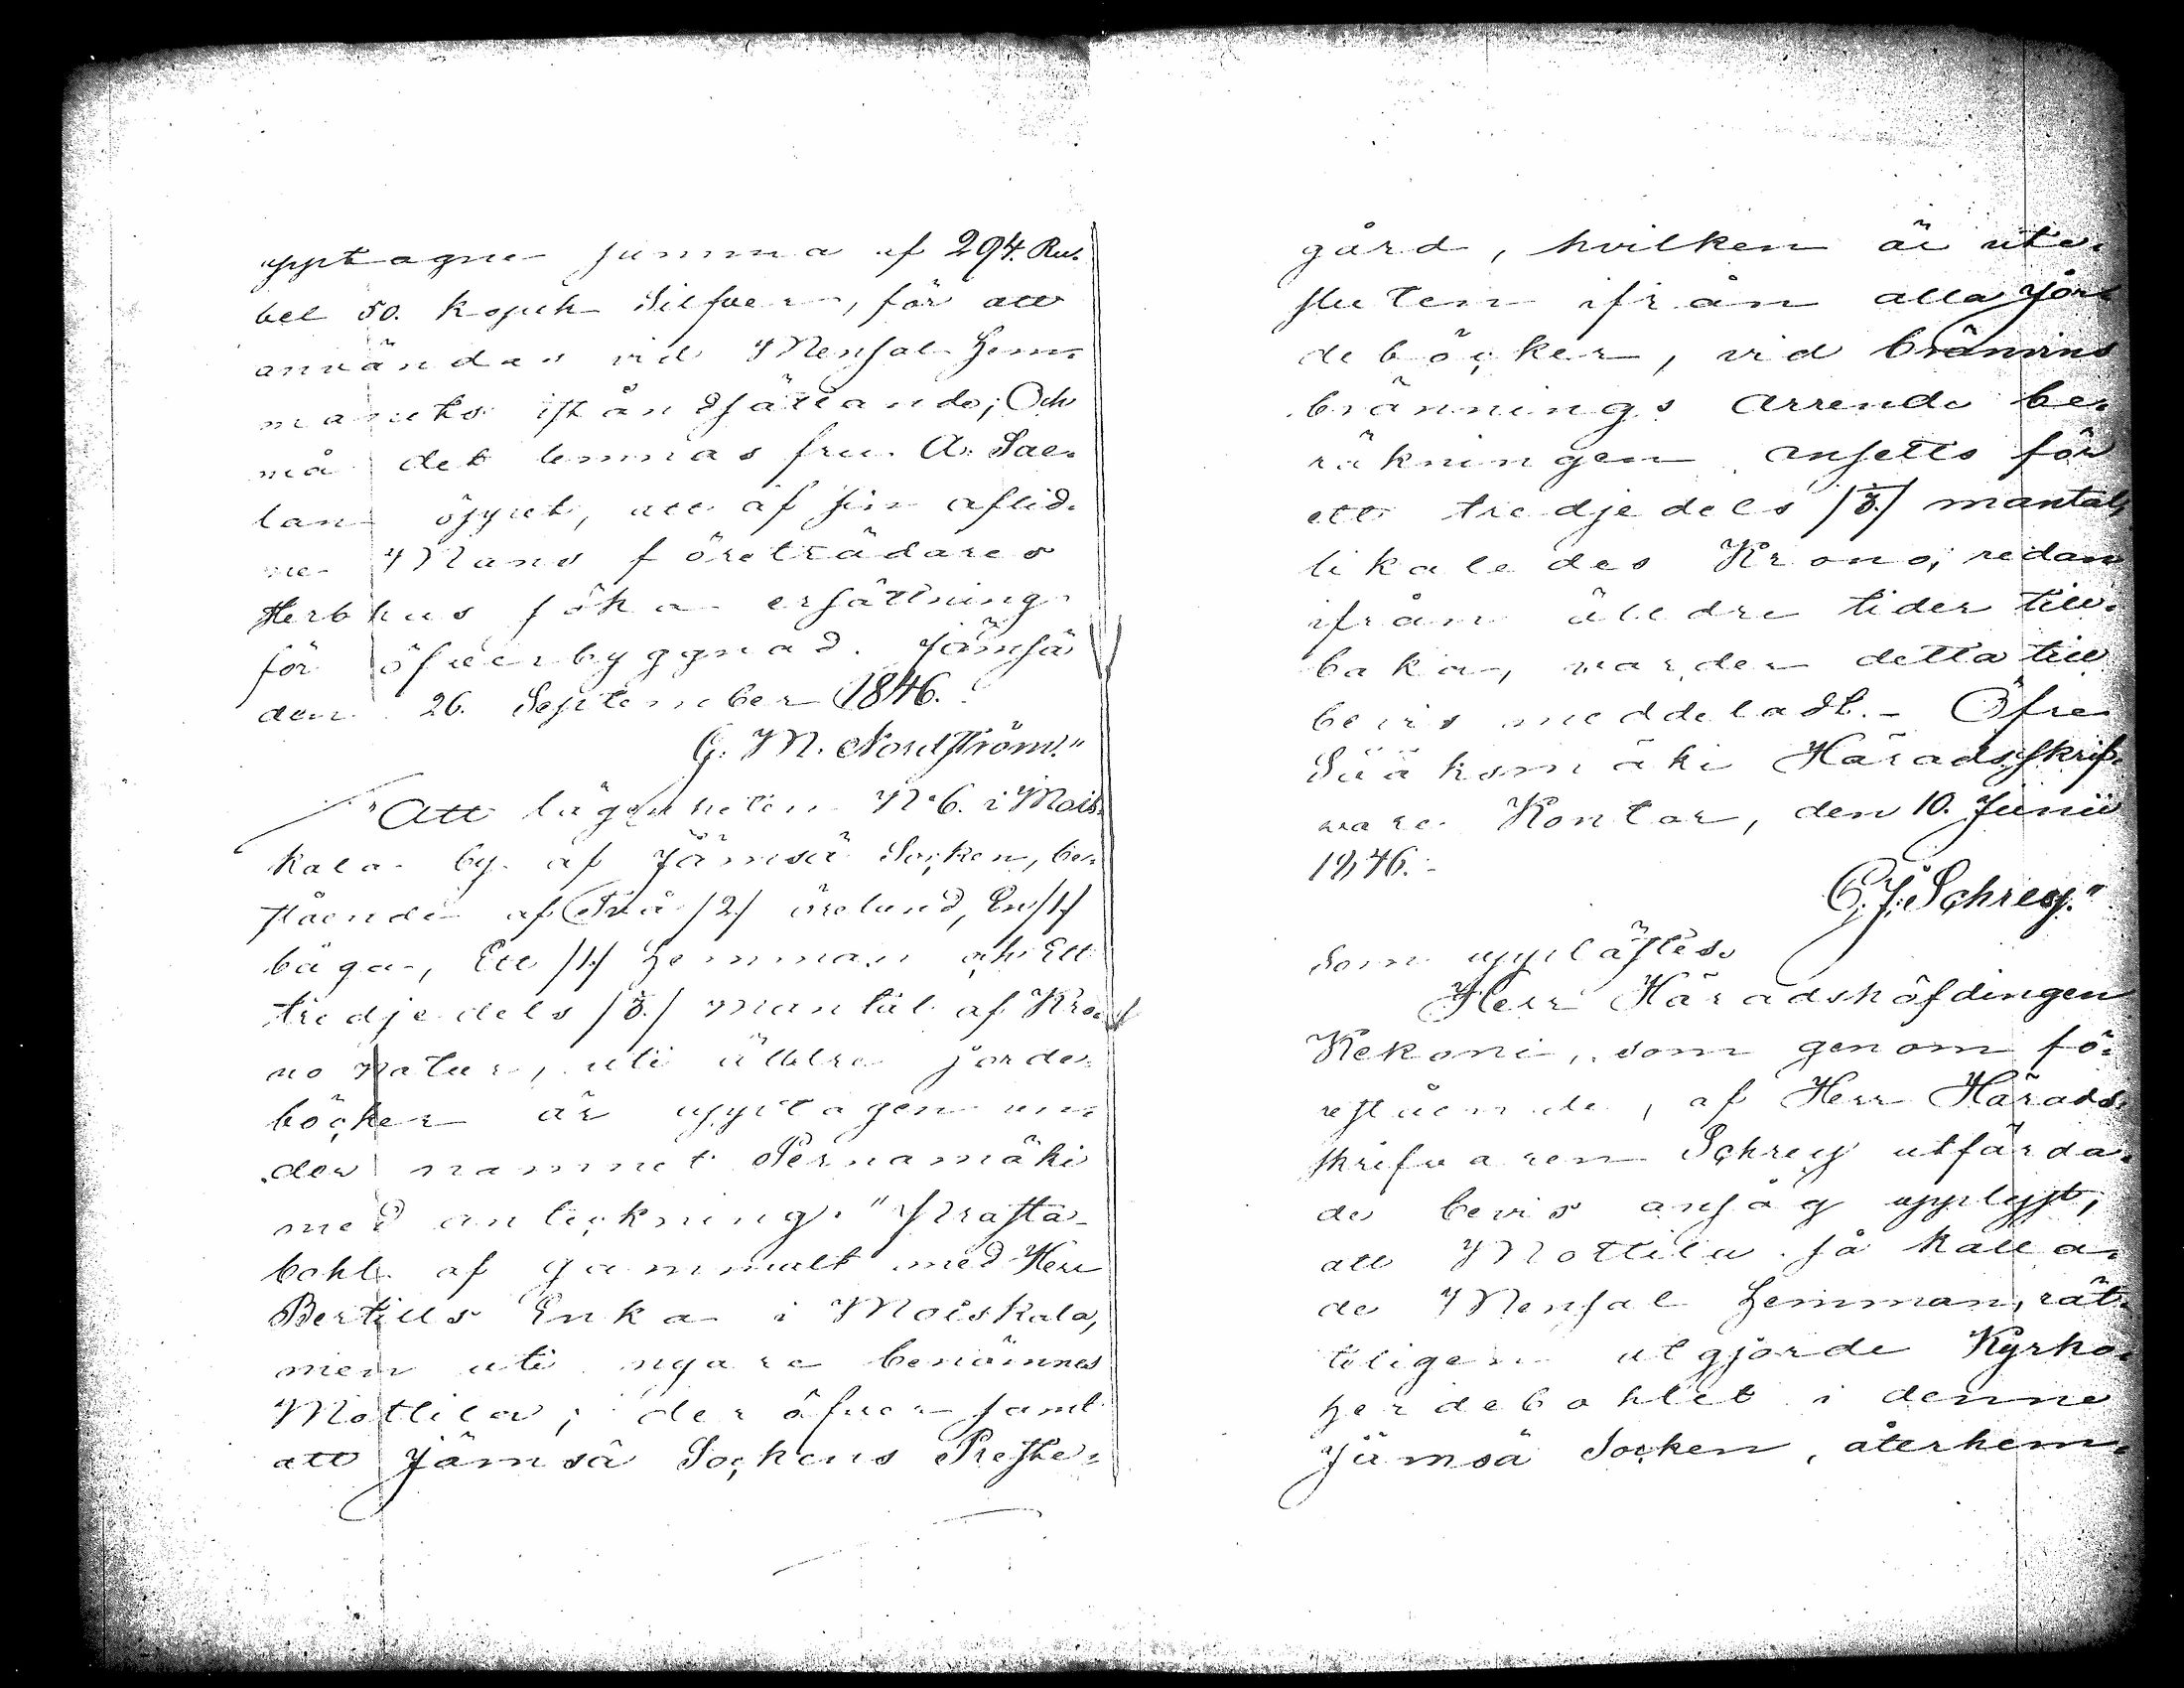 upptagne summa af 294. Ru-
bel 50. kopek Silfver, för att
användas vid Mensal hem-
manets iståndsättande; Och
må det lemnas fru A. Sae-
lan öppet, att af sin aflid-
ne Mans företrädares
Sterbhus söka ersättning
för öfverbyggnad. Jämsä
den 26. September 1846.
G. M. Nordström."
"Att lägenheten N:o 6. i Mois-
kala by af Jämsä Socken, be-
stående af Två /2/ öreland, En /1/
båga, Ett /1/ hemman och Ett
tredjedels /⅓./ mantal af Kro-
no natur, uti äldre jorde-
böcker är upptagen un-
der namnet Pernamäki
med anteckning. "Prästa-
bohl af gammalt med Herr
Bertills Enka i Moiskala,
men uti nyare benämnes
Mottila; der öfver samt
att Jämsä Sockens Preste-
gård, hvilken är ute-
sluten ifrån alla jor-
deböcker, vid brännvins
brännings arrende be-
räkningen ansetts för
ett tredjedels /⅓./ mantal,
likaledes Krono, redan
ifrån äldre tider till-
baka, varder detta till
bevis meddeladt. - Öfre
Sääksmäki Häradsskrif-
vare Kontor, den 10. Junii
1846. -
C. J. Schrey."
Som upplästes.
Herr Häradshöfdingen
Kekoni, som genom fö-
restående, af Herr Härads-
skrifvaren Schrey utfärda-
de bevis ansåg upplyst,
att Mottila så kalla-
de Mensal hemman, rät-
teligen utgjorde Kyrko-
herdebohlet i denne
Jämsä Socken, återhem-